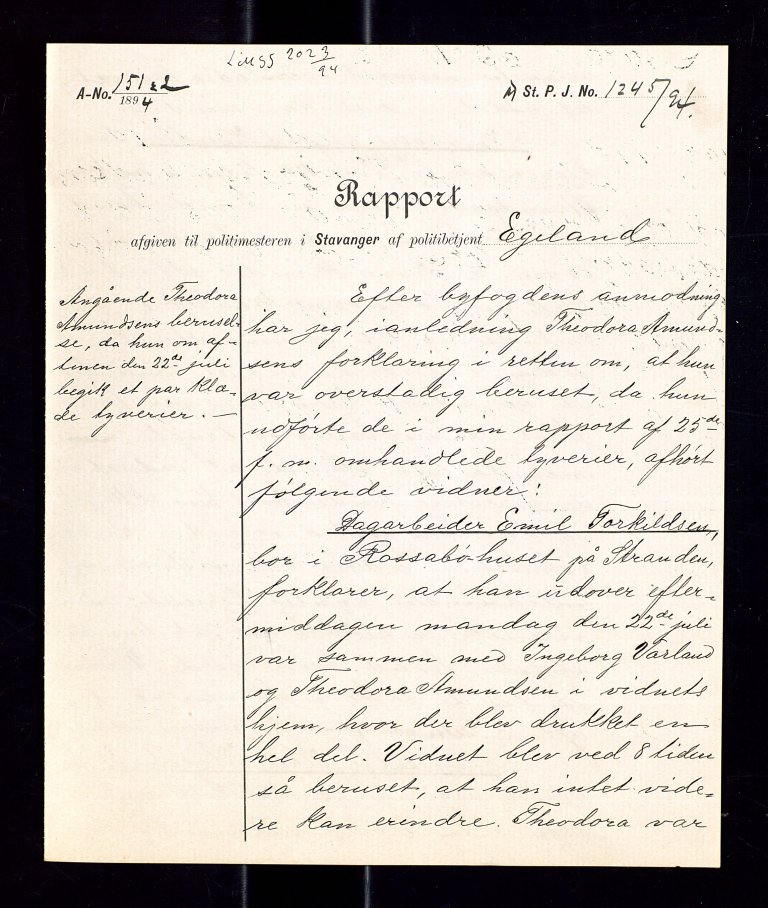 2023/94
A-No. 151 & 2
1894
St. P. J. No. 1245/94.
Rapport
afgiven til politimesteren i Stavanger af politibetjent Egeland
Angående Theodora
Amundsens berusel-
se, da hun om af-
tenen den 22de juli
begik et par klæ-
de tyverier. —
Efter byfogdens anmodning
har jeg, ianledning Theodora Amund-
sens forklaring i retten om, at hun
var overstadig beruset, da hun
udførte de i min rapport af 25de
f. m. omhandlede tyverier, afhørt
følgende vidner:
Dagarbeider Emil Torkildsen,
bor i Rossabø-huset på Stranden,
forklarer, at han udover efter-
middagen mandag den 22de juli
var sammen med Ingeborg Varland
og Theodora Amundsen i vidnets
hjem, hvor der blev drukket en
hel del. Vidnet blev ved 8 tiden
så beruset, at han intet vide-
re kan erindre. Theodora var